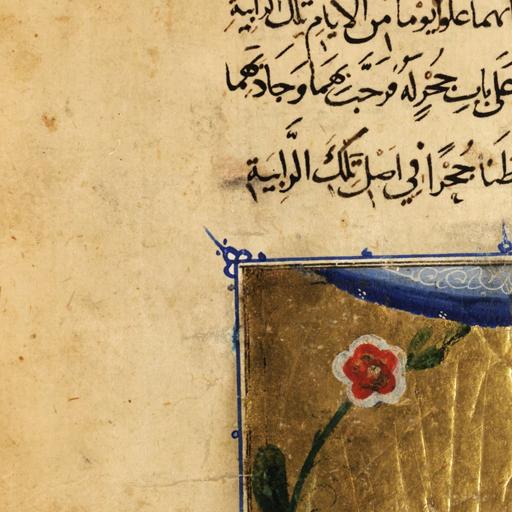 علوا يوما من الايام تلك الرابية
على باب جحر له فرحبت بهما وجاد بهما
جحرا في اصل تلك الرابية